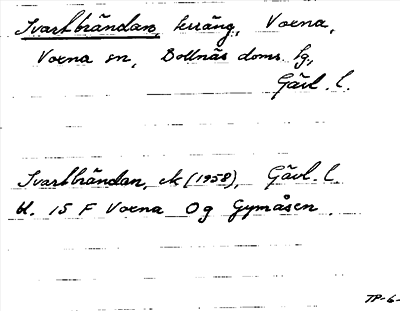 Svartbrändan, terräng, Voxna,
Voxna sn, Bollnäs doms. hg.,
Gävl. l.
Svartbrändan, ek (1958), Gävl. l.
bl. 15 F Voxna Og Gymåsen.
TP-6-